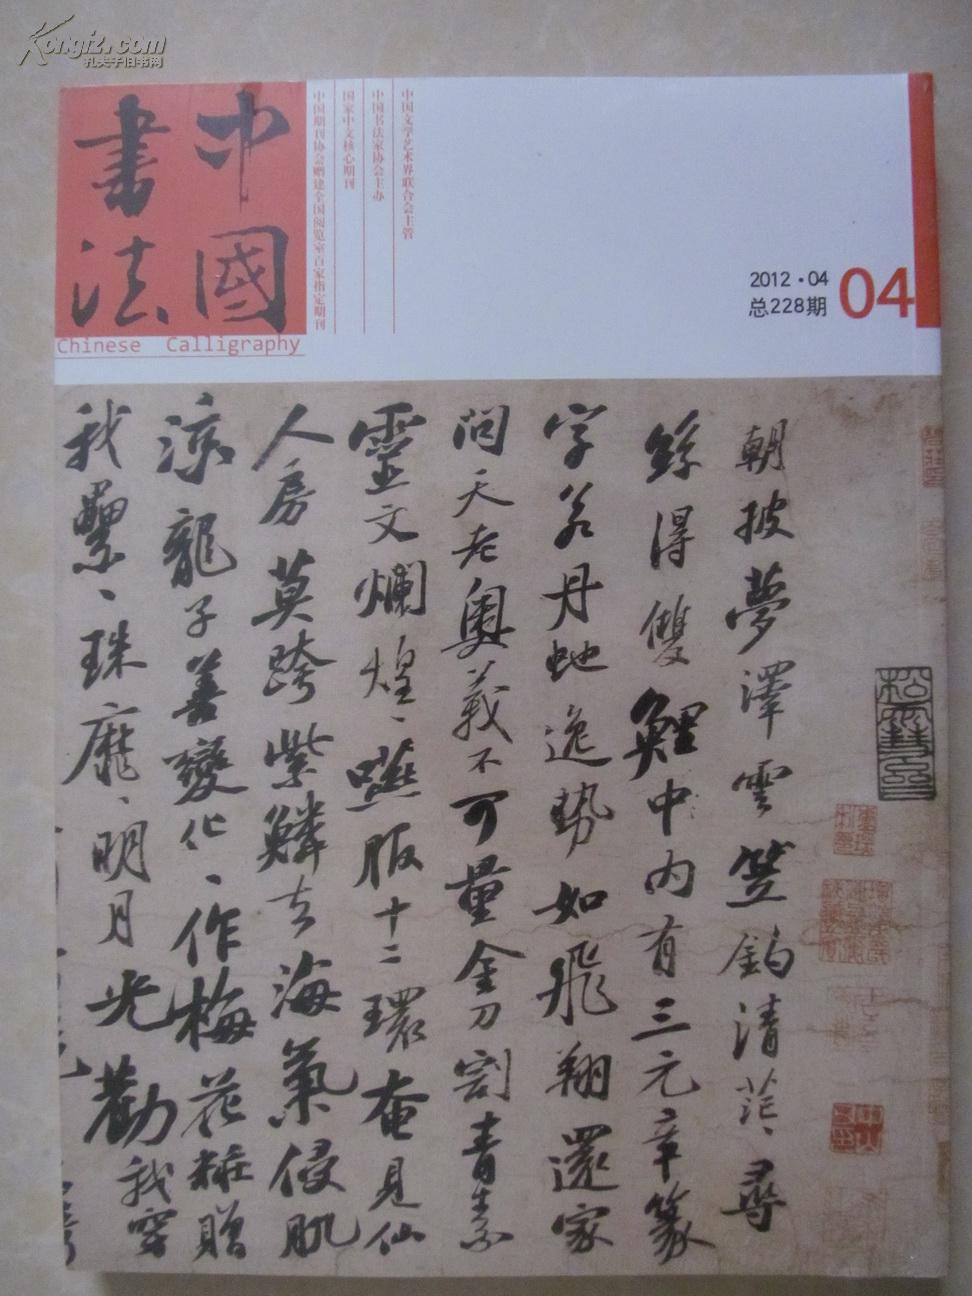 Kongfz.com
孔夫子旧书网
中國
書法
Chinese Calligraphy
中国文学艺术界联合会主管
中国书法家协会主办
国家中文核心期刊
中国期刊协会赠建全国阅览室百家指定期刊
2012·04
总228期
04
朝披夢澤雲笠釣清茫〻尋
絲得雙鯉中内有三元章篆
字若丹虵逸勢如飛翔還家
問天老奧義不可量金刀割青素
靈文爛煌〻嚥服十二環奄見仙
人房莫跨紫鱗去海氣侵肌
涼龍子善變化〻作梅花粧贈
我纍〻珠靡〻明月光勸我穿